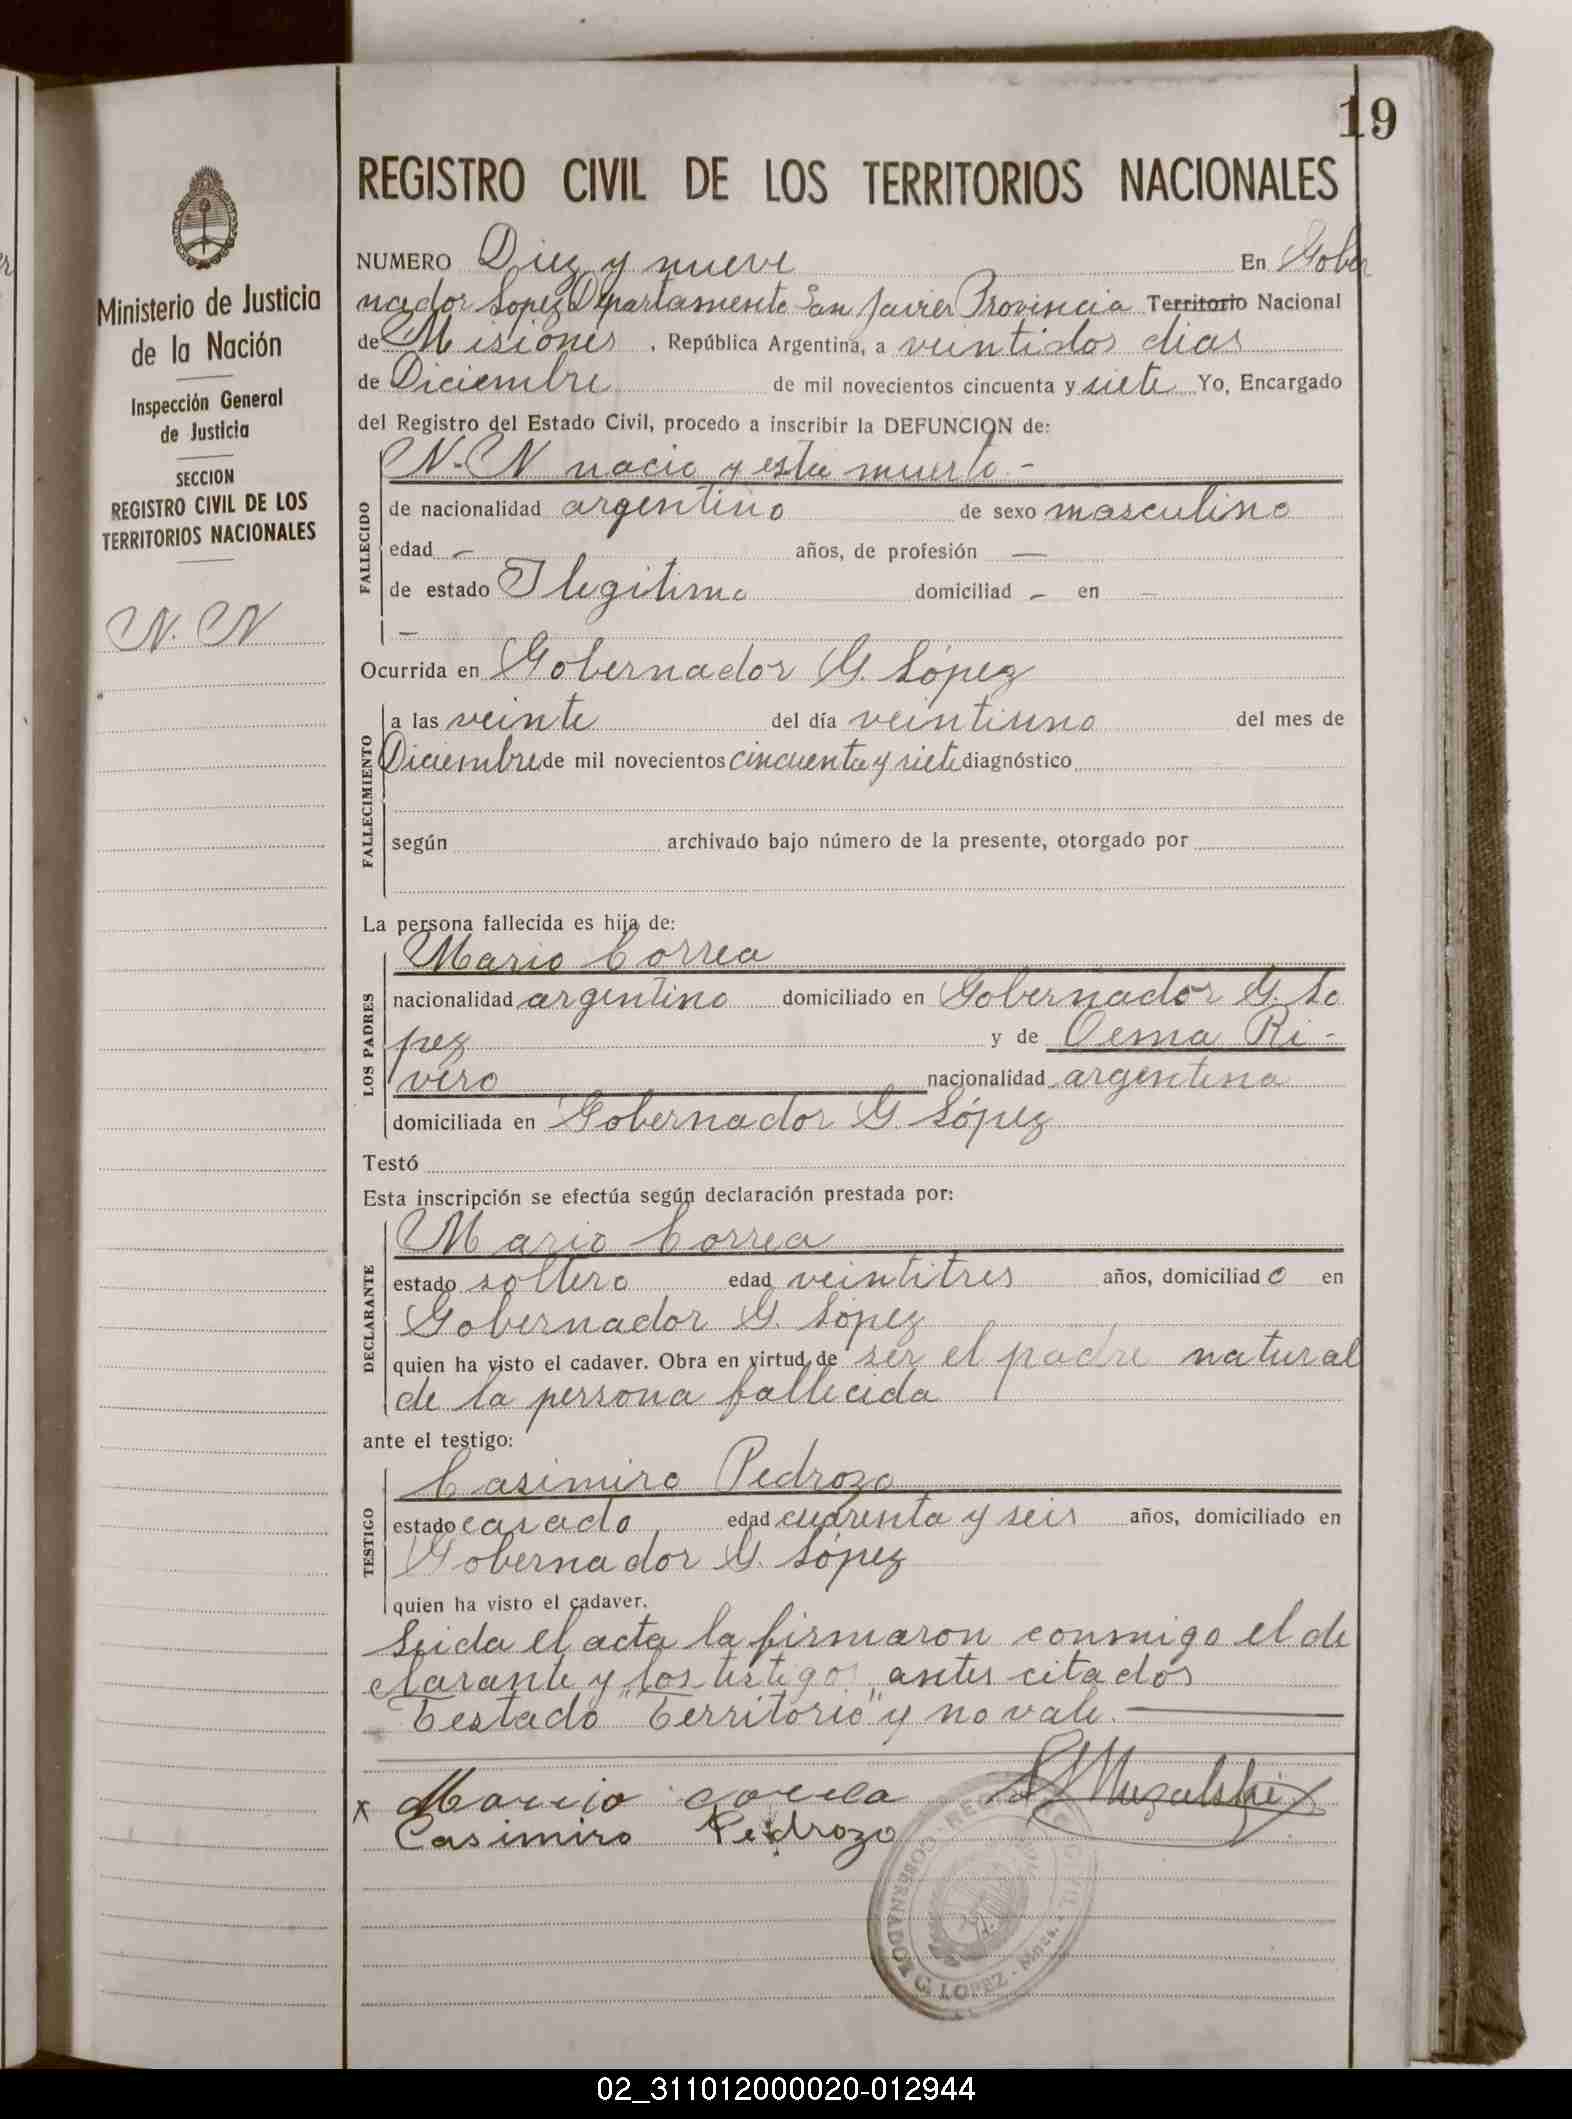 19
REGISTRO CIVIL DE LOS TERRITORIOS NACIONALES
Ministerio de Justicia
de la Nación
Inspección General
de Justicia
SECCION
REGISTRO CIVIL DE LOS
TERRITORIOS NACIONALES
N. N
NUMERO Diez y nueve En Gober
nador Lopez Departamento San Javier Provincia Territorio Nacional
de Misiones, República Argentina, a veintidos dias
de Diciembre de mil novecientos cincuenta y siete Yo, Encargado
del Registro del Estado Civil, procedo a inscribir la DEFUNCION de:
FALLECIDO
N. N nacio y esta muerto.-
de nacionalidad argentino de sexo masculino
edad - años, de profesión —
de estado Ilegitimo domiciliad - en -
-
Ocurrida en Gobernador G. López
FALLECIMIENTO
a las veinte del día veintiuno del mes de
Diciembre de mil novecientos cincuenta y siete diagnóstico
según archivado bajo número de la presente, otorgado por
La persona fallecida es hija de:
LOS PADRES
Mario Correa
nacionalidad argentino domiciliado en Gobernador G. Lo
pez y de Oema Ri-
vero nacionalidad argentina
domiciliada en Gobernador G. López
Testó
Esta inscripción se efectúa según declaración prestada por:
DECLARANTE
Mario Correa
estado soltero edad veintitres años, domiciliado en
Gobernador G. López
quien ha visto el cadaver. Obra en virtud de ser el padre natural
de la persona fallecida
ante el testigo:
TESTIGO
Casimiro Pedrozo
estado casado edad cuarenta y seis años, domiciliado en
Gobernador G. López
quien ha visto el cadaver.
Leida el acta la firmaron conmigo el de
clarante y los testigos antes citados
Testado "Territorio" y no vale.
x Mario correa
Casimiro Pedrozo
GOBERNADOR G. LOPEZ
02_311012000020-012944